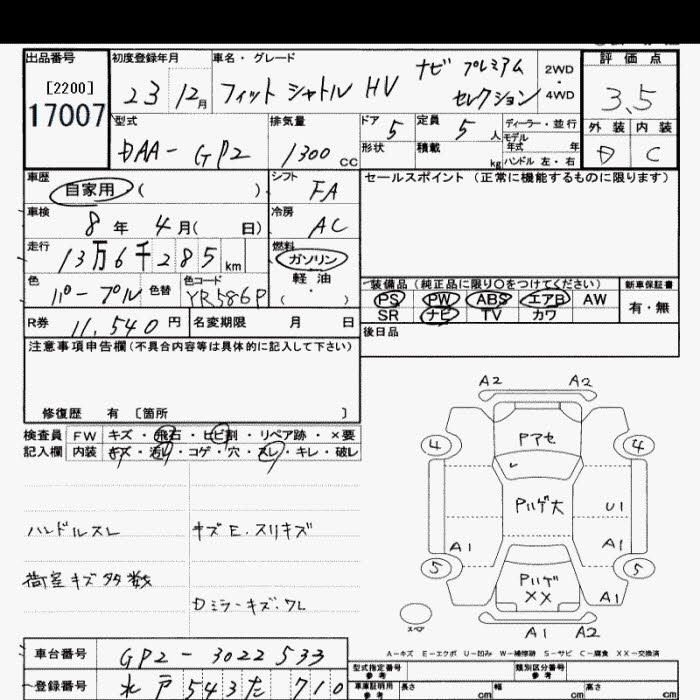 出品番号
[2200]
17007
初度登録年月
23 12月
車名・グレード
フィットシャトル HV
ナビ プレミアム
セレクション
2WD
・
4WD
評価点
3.5
外装 内装
D C
型式
DAA-GP2
排気量
1300 cc
ドア
5
定員
5 人
形状
積載
kg
ディーラー・並行
モデル
年式 年
ハンドル 左・右
車歴
自家用 ( )
シフト
FA
車検
8年 4月( 日)
冷房
AC
走行
13万6千285km
燃料
ガソリン
軽油
( ・ )
色
パープル
色替
色コード
YR586P
R券
11,540 円
名変期限 月 日
セールスポイント (正常に機能するものに限ります)
装備品 (純正品に限り○をつけてください)
PS PW ABS エアB AW
SR ナビ TV カワ
新車保証書
有・無
後日品
注意事項申告欄 (不具合内容等は具体的に記入して下さい)
修復歴 有 〔箇所 〕
検査員
記入欄
FW キズ・飛石・ヒビ割・リペア跡・×要
内装 キズ・汚レ・コゲ・穴・スレ・キレ・破レ
ハンドルスレ
荷室キズ多数
キズE.スリキズ
Dミラーキズ.ワレ
A2 A2
4 4
Pアセ
Pハゲ大
U1
A1 A1
5 5
Pハゲ
XX
A1
スペア
A1 A2
A-キズ E-エクボ U-凹み W-補修跡 S-サビ C-腐食 XX-交換済
車台番号
GP2-3022533
登録番号
水戸543た710
型式指定番号
参考
類別区分番号
参考
車庫証明用
参考
長さ cm
幅 cm
高さ cm